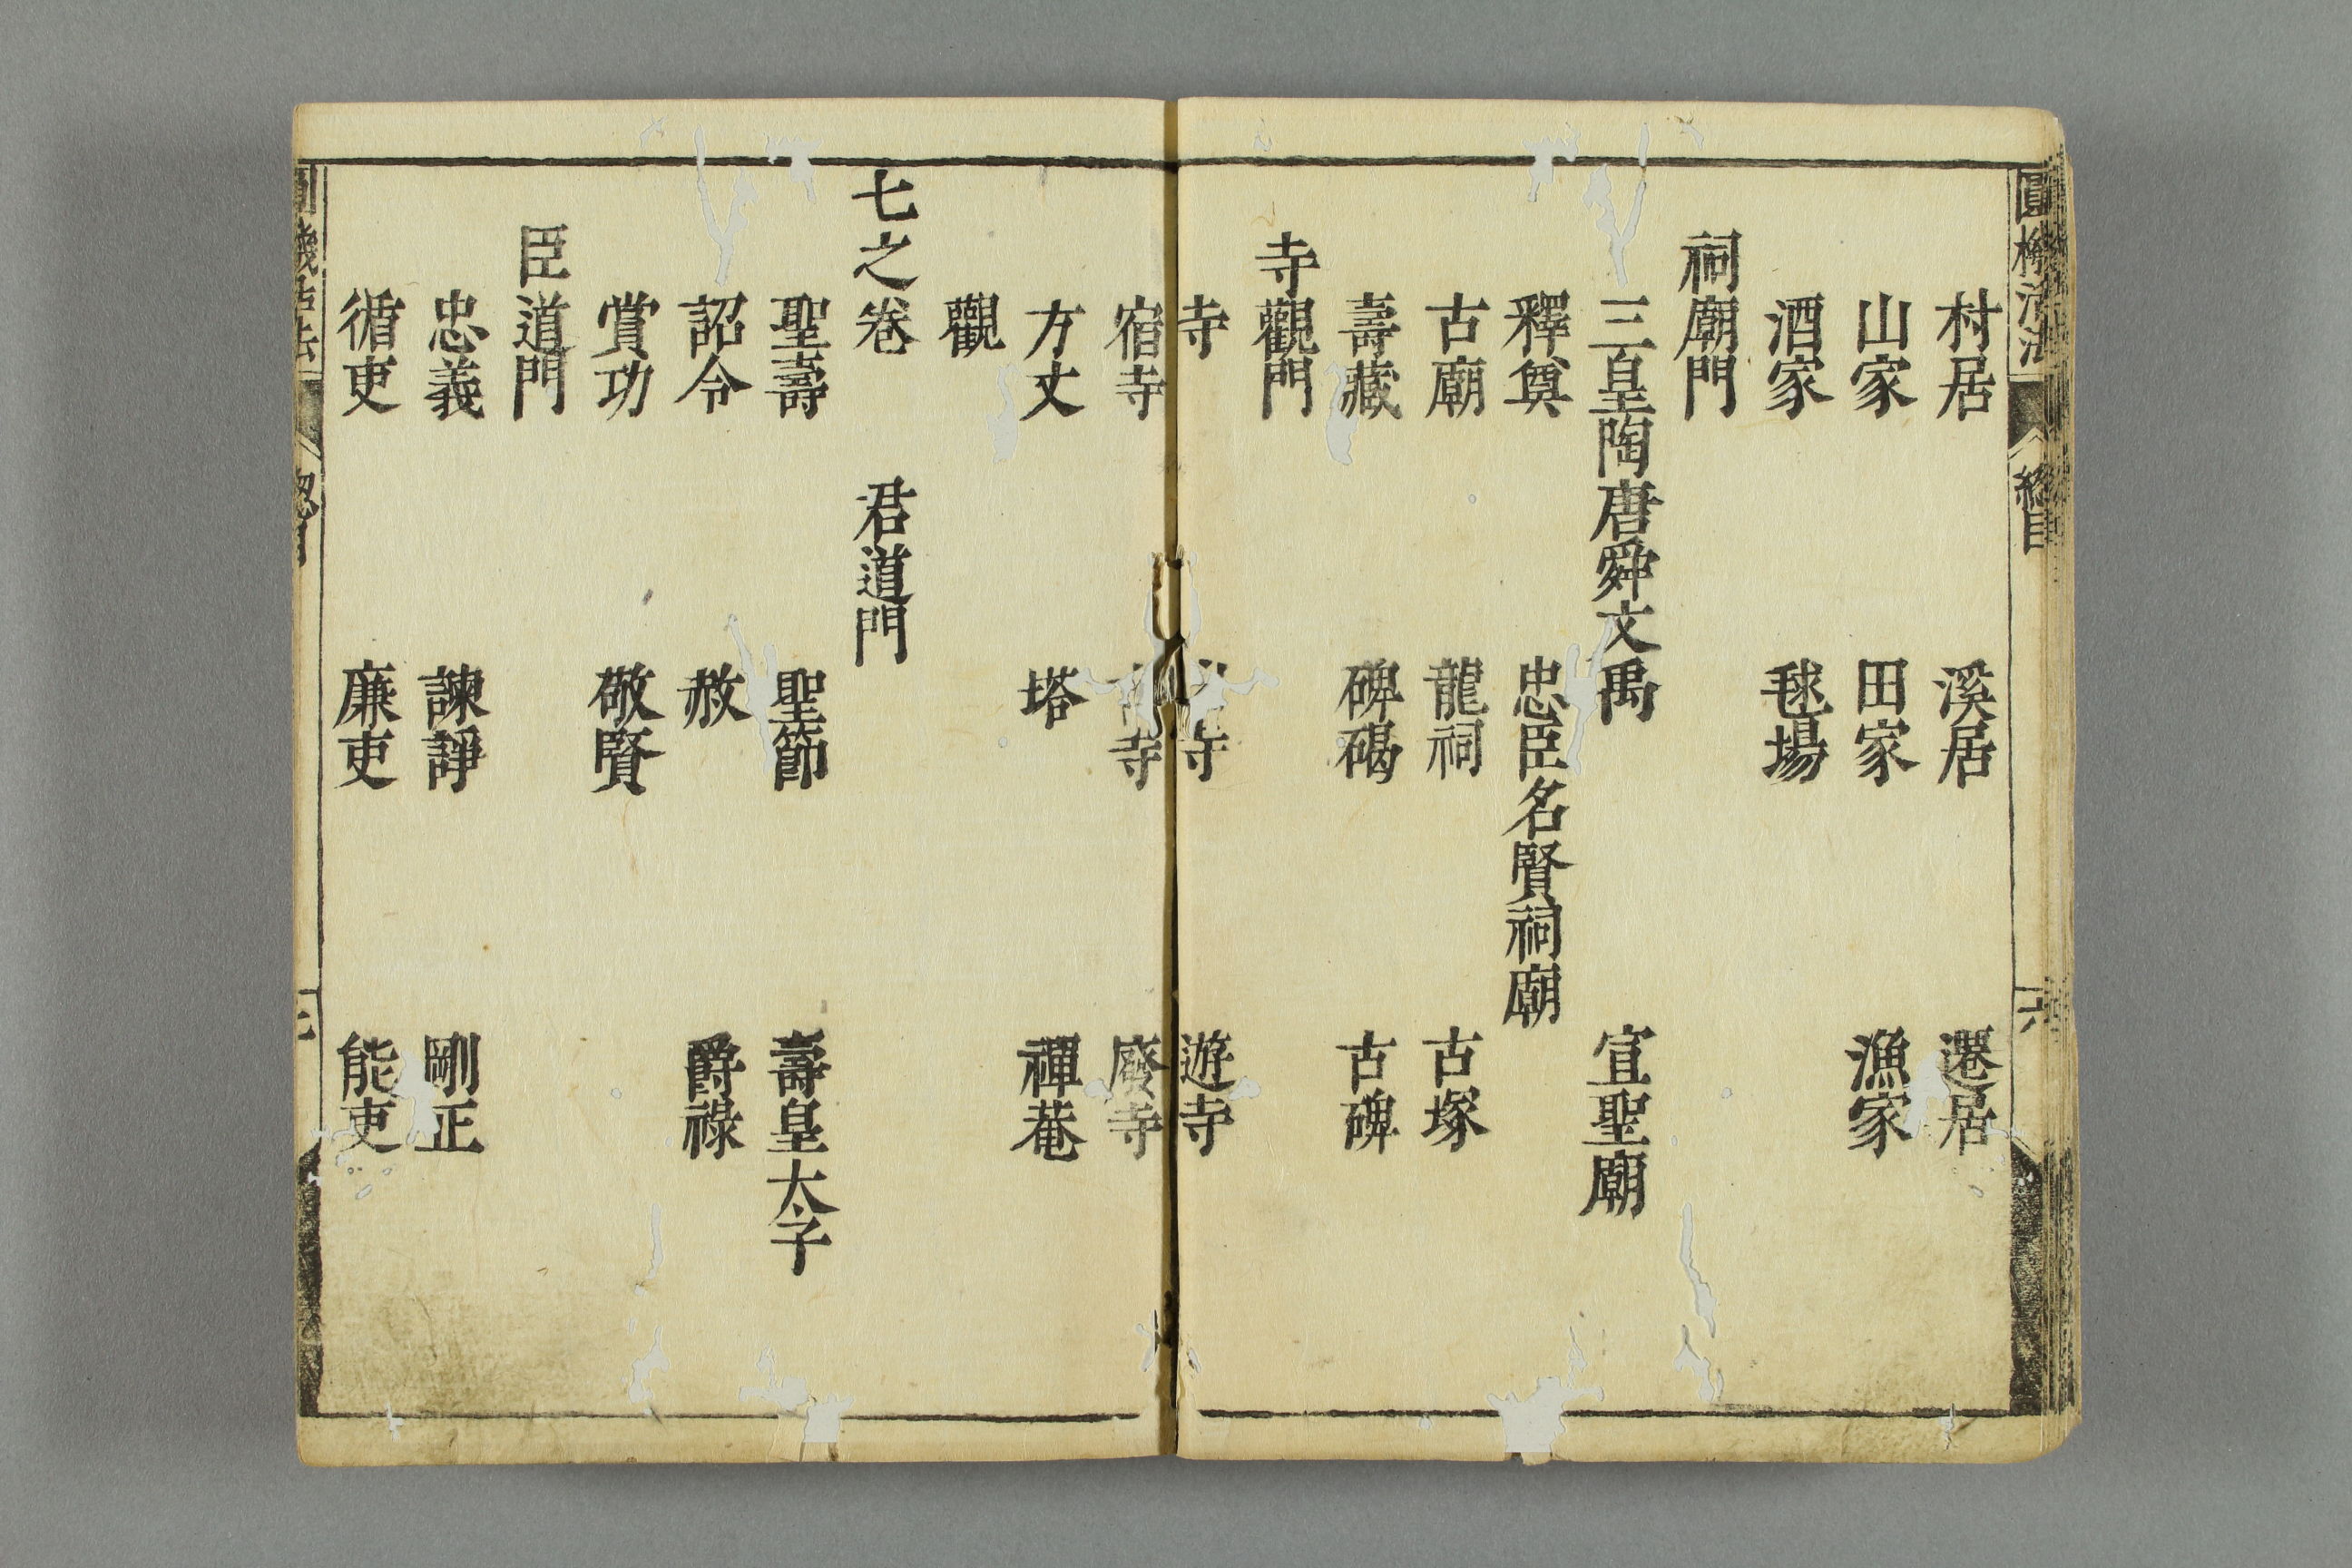 圓機活法
總目
六
村居 溪居 遷居
山家 田家 漁家
酒家 毬場
祠廟門
三皇陶唐舜文禹 宣聖廟
釋奠 忠臣名賢祠廟
古廟 龍祠 古塚
壽藏 碑碣 古碑
寺觀門
寺 寺 遊寺
宿寺 寺 廢寺
方丈 塔 禪菴
觀
七之卷 君道門
聖壽 聖節 壽皇太子
詔令 赦 爵祿
賞功 敬賢
臣道門
忠義 諫諍 剛正
循吏 廉吏 能吏